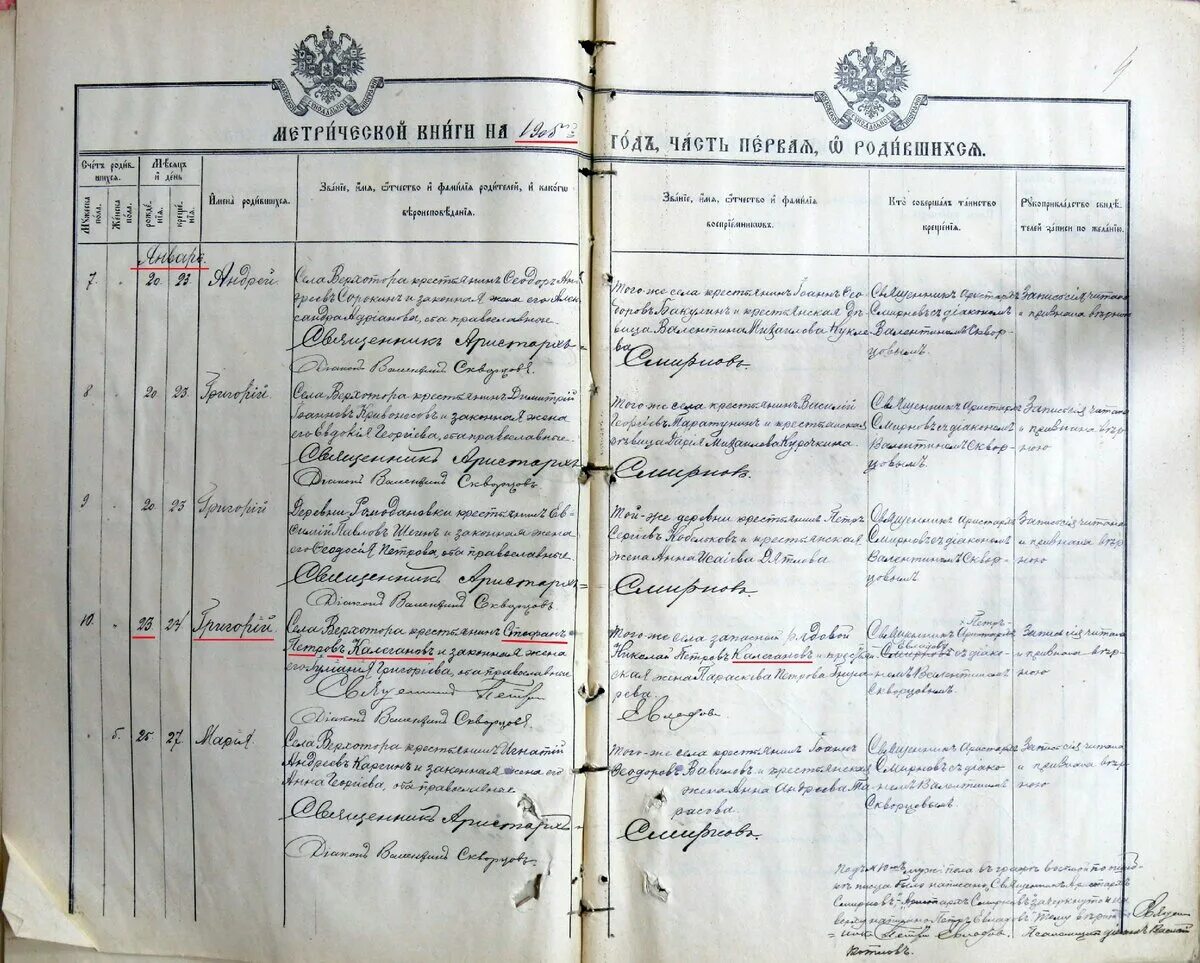 МЕТРИ́ЧЕСКОЙ КНИ́ГИ НА 1906й
ГО́ДЪ, ЧА́СТЬ ПЕ́РВАЯ, Ѿ РОДИ́ВШИХСЯ.
Счетъ родившихся.
Мужеска пола.
Женска пола.
Мѣсяцъ и день
рожденія.
крещенія.
Имена родившихся.
Званіе, имя, отчество и фамилія родителей, и какого
вѣроисповѣданія.
Званіе, имя, отчество и фамилія
воспріемниковъ.
Кто совершалъ таинство
крещенія.
Рукоприкладство свидѣ
телей записи по желанію.
Январь.
7. " 20 23 Андрей
Села Верхотора крестьянинъ Ѳеодоръ Анд
реевъ Сорокинъ и законная жена его Алек
сандра Адріанова, оба православные.
Священникъ Аристархъ
Діаконъ Валентинъ Скворцовъ.
Того-же села крестьянинъ Іоаннъ Ѳео
доровъ Бакулинъ и крестьянская дѣ
вица Валентина Михаилова Кукле
ва
Смирновъ.
Священникъ Аристархъ
Смирновъ съ діакономъ
Валентиномъ Сквор-
цовымъ.
Запись сія читана
и признана вѣрною
8 " 20 23 Григорій.
Села Верхотора крестьянинъ Димитрій
Іоанновъ Кривоносовъ и законная жена
его Евдокія Георгіева, оба православные.
Священникъ Аристархъ
Діаконъ Валентинъ Скворцовъ.
Того-же села крестьянинъ Василій
Георгіевъ Паратунинъ и крестьянская
дѣвица Марія Михаилова Курочкина
Смирновъ.
Священникъ Аристархъ
Смирновъ съ діакономъ
Валентиномъ Сквор-
цовымъ.
Запись сія читана
и признана вѣр-
ною
9 " 20 23 Григорій
Деревни Ромодановки крестьянинъ Ев-
ѳимій Павловъ и законная жена
его Ѳеодосія Петрова, оба православные
Священникъ Аристархъ
Діаконъ Валентинъ Скворцовъ.
Той-же деревни крестьянинъ Петръ
Сергіевъ и крестьянская
жена Анна Исаіева Дятлова
Смирновъ.
Священникъ Аристархъ
Смирновъ съ діакономъ
Валентиномъ Сквор-
цовымъ
Запись сія читана
и признана вѣр-
ною
10. " 23 24 Григорій
Села Верхотора крестьянинъ Стефанъ
Петровъ Калгановъ и законная жена
его Іуліанія Григоріева, оба православные
Священникъ Петръ
Діаконъ Валентинъ Скворцовъ.
Того-же села запасной рядовой
Николай Петровъ Калгановъ и крестьян
ская жена Параскева Петрова
Евладовъ.
Петръ
Священникъ Аристархъ
Евладовъ
Смирновъ съ діако-
номъ Валентиномъ
Скворцовымъ.
Запись сія читана
и признана вѣр-
ною
" 5. 25 27 Марія.
Села Верхотора крестьянинъ Игнатій
Андреевъ Каргинъ и законная жена его
Анна Георгіева, оба православные.
Священникъ Аристархъ
Діаконъ Валентинъ Скворцовъ.
Того-же села крестьянинъ Іоаннъ
Ѳеодоровъ Вавиловъ и крестьянская
жена Анна Андреева Та
расова.
Смирновъ.
Священникъ Аристархъ
Смирновъ съ діако-
номъ Валентиномъ
Скворцовымъ.
Запись сія читана
и признана вѣр-
ною
Подъ № 10-мъ мужск. пола въ графѣ
было написано „Священникъ Аристархъ
Смирновъ“ „Аристархъ Смирновъ“ зачеркнуто и на
верху написано „Петръ Евладовъ“ тому вѣрить
Петръ Евладовъ. Псаломщикъ